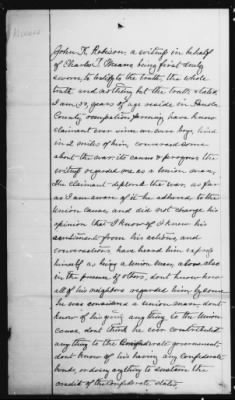 Means
John K. Robison a witness in behalf
of Charles I. Means being first duly
sworn, to testify to the truth, the whole
truth and nothing but the truth, states
I am 39 years of age reside in Panola
County occupation farming have know
claimant ever since we were boys lived
in 2 miles of him, conversed some
about the war its causes & progress the
witness regarded me as a Union man,
The claimant deplored the war, as far
as I am aware of it he adhered to the
Union cause, and did not change his
opinion that I know of I knew his
sentiment from his actions, and
conversations have heard him express
himself as being a Union man, alone also
in the presence of others, dont know how
all of his neighbors regarded him by some
he was considered a Union man, dont
know of his giving any thing to the Union
cause, dont think he ever contributed
anything to the Confederate government
dont know of his having any Confederate
bonds, or doing anything to sustain the
credit of the Confederate states,